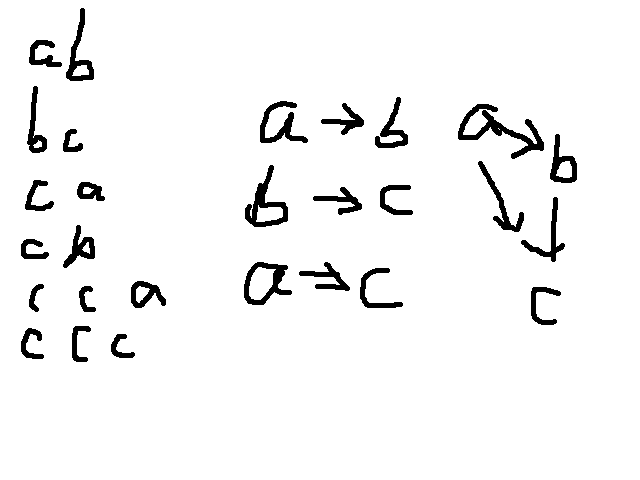 ab
bc
c a
c b
c c a
c c c
a → b
b → c
a → c
a → b
c